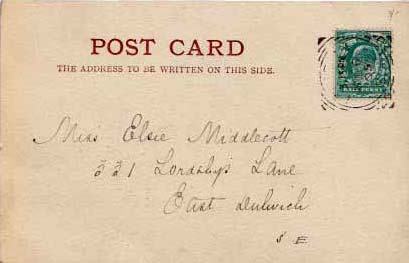 POST CARD
THE ADDRESS TO BE WRITTEN ON THIS SIDE.
HALF PENNY
Miss Elsie Middlecott
331 Lordship Lane
East Dulwich
S E